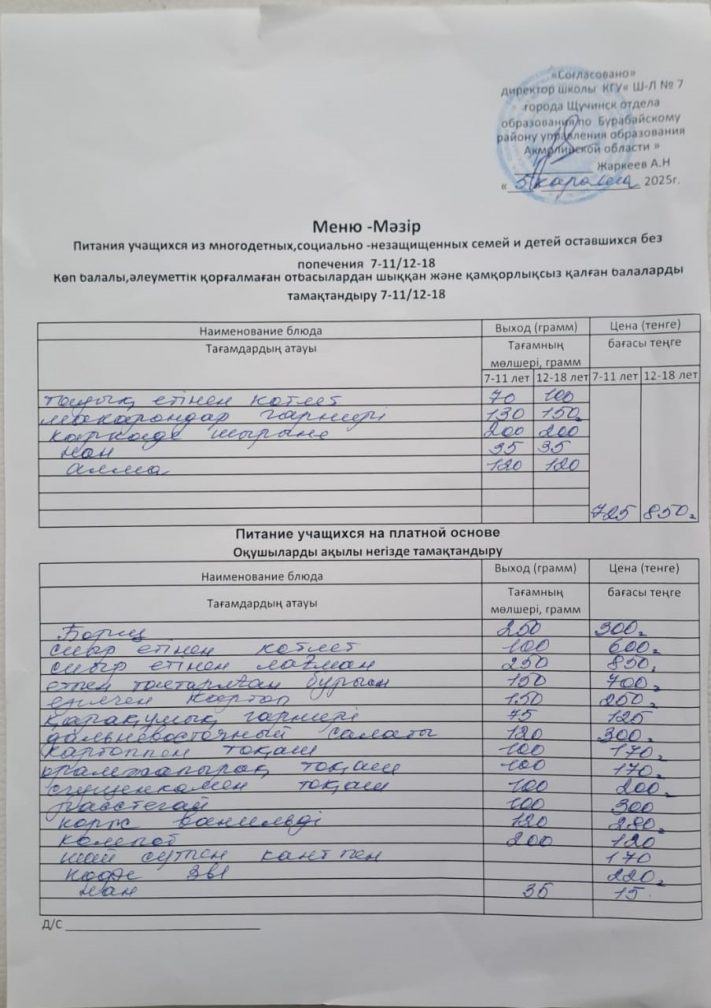 «Согласовано»
директор школы КГУ« Ш-Л № 7
города Щучинск отдела
образования по Бурабайскому
району управления образования
Акмолинской области »
Жаркеев А.Н
« 5 » қараша 2025г.
Меню -Мәзір
Питания учащихся из многодетных,социально -незащищенных семей и детей оставшихся без
попечения 7-11/12-18
Көп балалы,әлеуметтік қорғалмаған отбасылардан шыққан және қамқорлықсыз қалған балаларды
тамақтандыру 7-11/12-18
Наименование блюда Выход (грамм) Цена (тенге)
Тағамдардың атауы Тағамның мөлшері, грамм бағасы теңге
7-11 лет 12-18 лет 7-11 лет 12-18 лет
тауық етінен котлет 70 100
макарондар гарнирі 130 150
каркаде шырыны 200 200
нан 35 35
алма 120 120
725 850
Питание учащихся на платной основе
Оқушыларды ақылы негізде тамақтандыру
Наименование блюда Выход (грамм) Цена (тенге)
Тағамдардың атауы Тағамның мөлшері, грамм бағасы теңге
Борщ 250 300
сиыр етінен котлет 100 600
сиыр етінен лағман 250 850
етпен толтырылған бурыш 150 700
картоп 150 250
қарақұмық гарнирі 75 125
дальневосточный салаты 120 300
картоппен тоқаш 100 170
орамжапырақ тоқаш 100 170
сгущенкамен тоқаш 100 200
расстегай 100 300
корж ванильді 120 280
компот 200 120
шай сүтпен кантпен 170
кофе 3в1 220
нан 35 15
Д/С